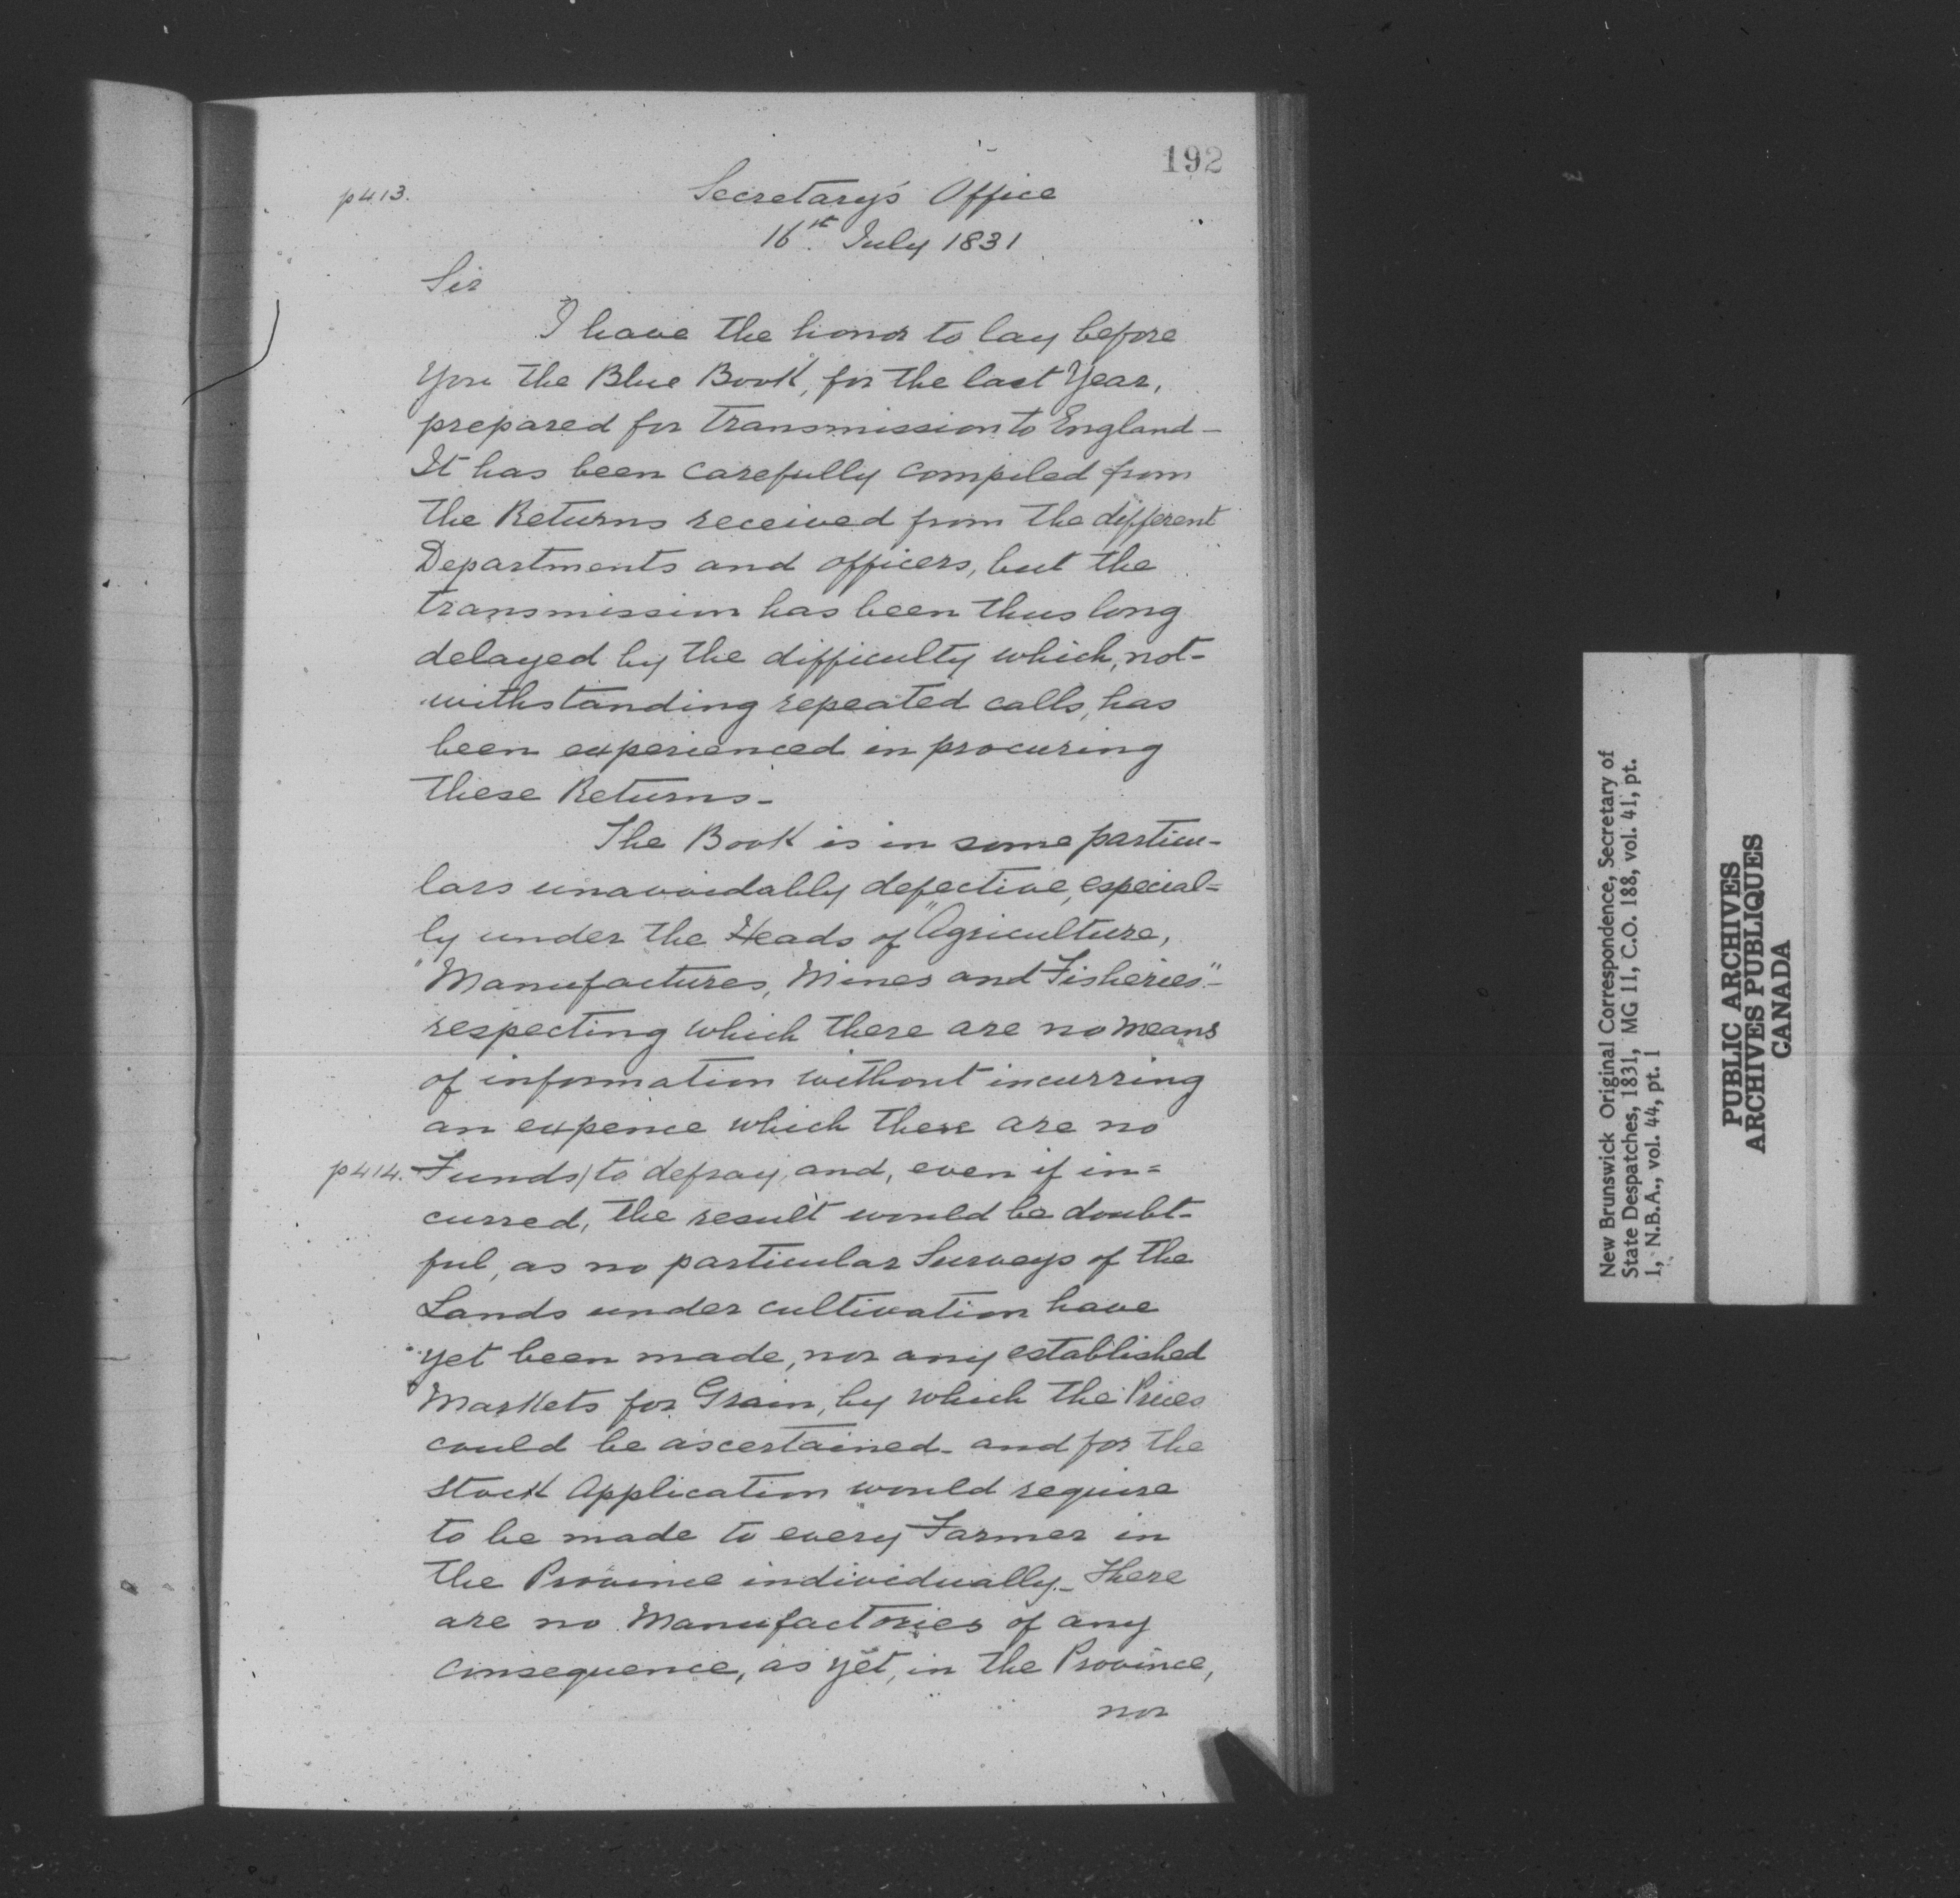 192
p413.
Secretary's Office
16th July 1831
Sir
I have the honor to lay before
you the Blue Book, for the last Year,
prepared for transmission to England –
It has been carefully compiled from
the Returns received from the different
Departments and officers, but the
transmission has been thus long
delayed by the difficulty which, not-
withstanding repeated calls, has
been experienced in procuring
these Returns –
The Book is in some particu-
lars unavoidably defective, especial=
ly under the Heads of "Agriculture,
"Manufactures, Mines and Fisheries" –
respecting which there are no means
of information without incurring
an expence which there are no
p414. Funds / to defray, and, even if in=
curred, the result would be doubt-
ful, as no particular Surveys of the
Lands under cultivation have
yet been made, nor any established
Markets for Grain, by which the Prices
could be ascertained – and for the
Stock Application would require
to be made to every Farmer in
the Province individually – There
are no Manufactories of any
consequence, as yet, in the Province,
nor
New Brunswick Original Correspondence, Secretary of
State Despatches, 1831, MG 11, C.O. 188, vol. 41, pt.
1, N.B.A., vol. 44, pt. 1
PUBLIC ARCHIVES
ARCHIVES PUBLIQUES
CANADA